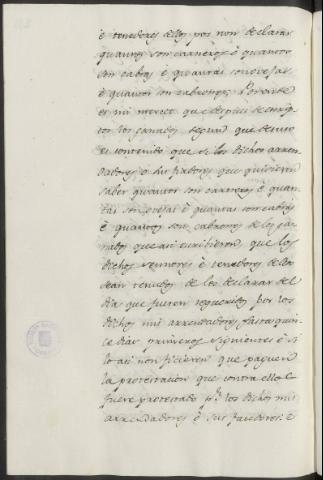 é tenedores dellos por non declarar
quantos son carneros é quantas
son cabras é quantas son ovejas
é quantos son cabrones. Por ende
es mi merced que despues de escrip
tos los ganados segund que de suso
es contenido que si los dichos arren
dadores o sus fiadores que quisieren
saber quantos son carneros é quan
tas son ovejas é quantas son cabras
é quantos son cabrones de los ga
nados que asi escribieren que los
dichos señores é tenedores dellos
sean tenudos de los declarar del
dia que fueren requeridos por los
dichos mis arrendadores fasta quin
ce dias primeros siguientes é si
lo asi non ficieren que paguen
la protestacion que contra ellos
fuere protestado pr. los dichos mis
arrendadores é sus facedores: é